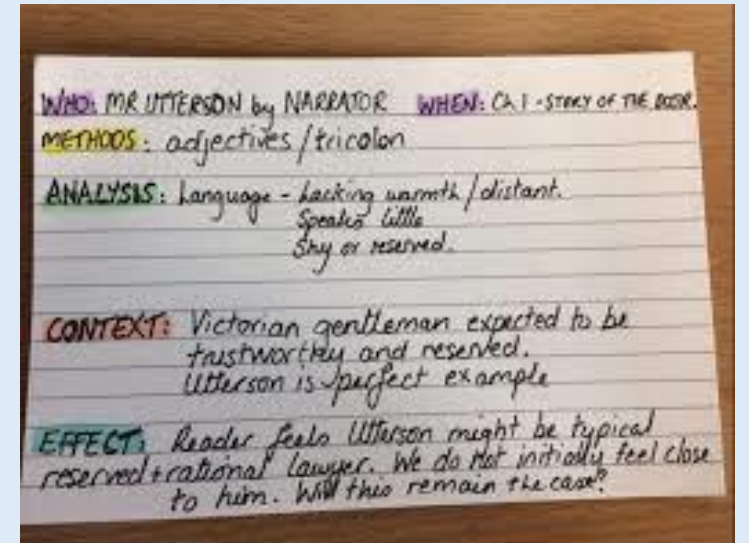 WHO: MR UTTERSON by NARRATOR WHEN: Ch 1 - STORY OF THE DOOR.
METHODS: adjectives / tricolon
ANALYSIS: Language - Lacking warmth / distant.
Speaks little
Shy or reserved.
CONTEXT: Victorian gentleman expected to be
trustworthy and reserved.
Utterson is perfect example
EFFECT: Reader feels Utterson might be typical
reserved + rational lawyer. We do not initially feel close
to him. Will this remain the case?